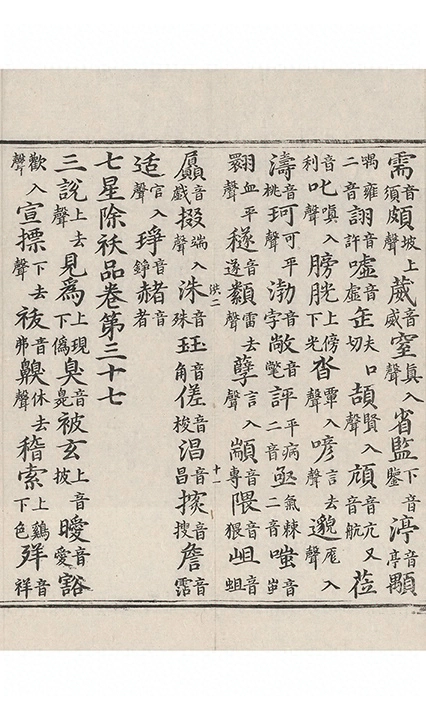 需音須頗坡上聲葳音威窒真入聲省監下音鑒渟音亭顒
喁音雍二音詡音許嘘音虛缶夫口切頡賢入聲頏音亢又音航莅
音利叱嗔入聲膀胱上傍下光沓覃入聲喭言去聲邈厖入聲
濤音桃珂可平聲渤音字敞音氅評平病二音亟氣棘二音嗤音蚩
翾血平聲䆳音遂纇雷去聲孽言入聲顓音專隈音猥岨音蛆
贔音戲掇端入聲洙音殊珏音角傞音梭淐音昌㨞音搜詹音霑
适官入聲琤音錚赭音者
七星除祅品卷第三十七
三說上去聲見爲上現下僞臭音㚖被玄上音披曖音愛豁
歡入聲宣摽下去聲祓音弗齅休去聲稽索上鷄下色𢍰音祥
洪二
十一